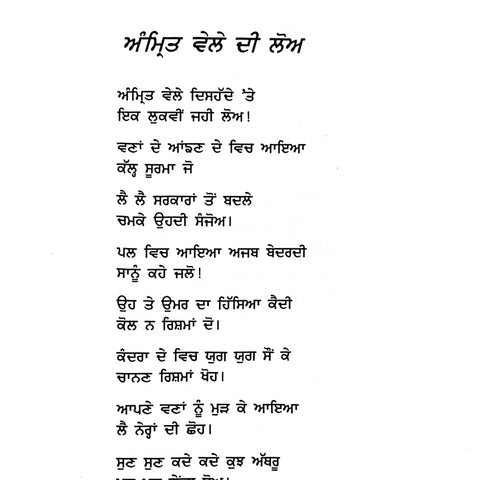 ਅੰਮ੍ਰਿਤ ਵੇਲੇ ਦੀ ਲੋਅ
ਅੰਮ੍ਰਿਤ ਵੇਲੇ ਦਿਸਹੱਦੇ 'ਤੇ
ਇਕ ਲੁਕਵੀਂ ਜਹੀ ਲੋਅ!
ਵਣਾਂ ਦੇ ਆਂਙਣ ਦੇ ਵਿਚ ਆਇਆ
ਕੱਲ੍ਹ ਸੂਰਮਾ ਜੋ
ਲੈ ਲੈ ਸਰਕਾਰਾਂ ਤੋਂ ਬਦਲੇ
ਚਮਕੇ ਉਹਦੀ ਸੰਜੋਅ।
ਪਲ ਵਿਚ ਆਇਆ ਅਜਬ ਬੇਦਰਦੀ
ਸਾਨੂੰ ਕਹੇ ਜਲੋ!
ਉਹ ਤੇ ਉਮਰ ਦਾ ਹਿੱਸਿਆ ਕੈਦੀ
ਕੋਲ ਨ ਰਿਸ਼ਮਾਂ ਦੋ।
ਕੰਦਰਾ ਦੇ ਵਿਚ ਯੁਗ ਯੁਗ ਸੌਂ ਕੇ
ਚਾਨਣ ਰਿਸ਼ਮਾਂ ਖੋਹ।
ਆਪਣੇ ਵਣਾਂ ਨੂੰ ਮੁੜ ਕੇ ਆਇਆ
ਲੈ ਨੇਰ੍ਹਾਂ ਦੀ ਛੋਹ।
ਸੁਣ ਸੁਣ ਕਦੇ ਕਦੇ ਕੁਝ ਅੱਥਰੂ